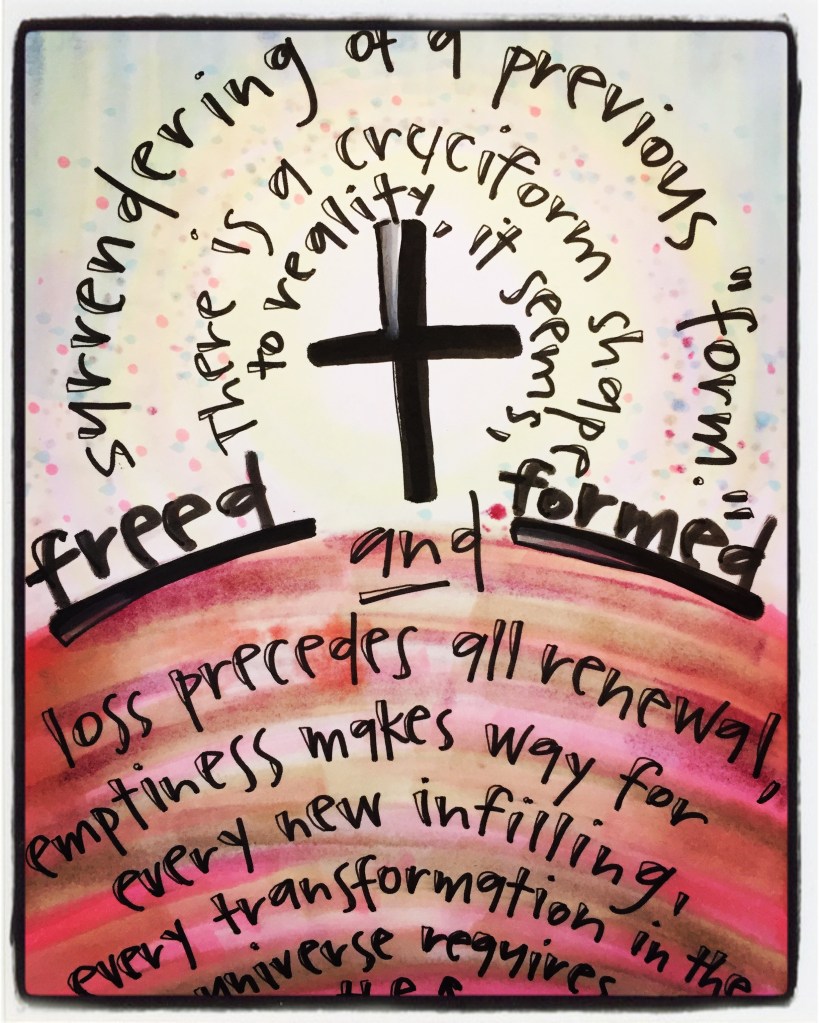 There is a cruciform shape
to reality, it seems,
freed
and
formed
loss precedes all renewal,
emptiness makes way for
every new infilling,
every transformation in the
universe requires
the
surrendering of a previous "form."